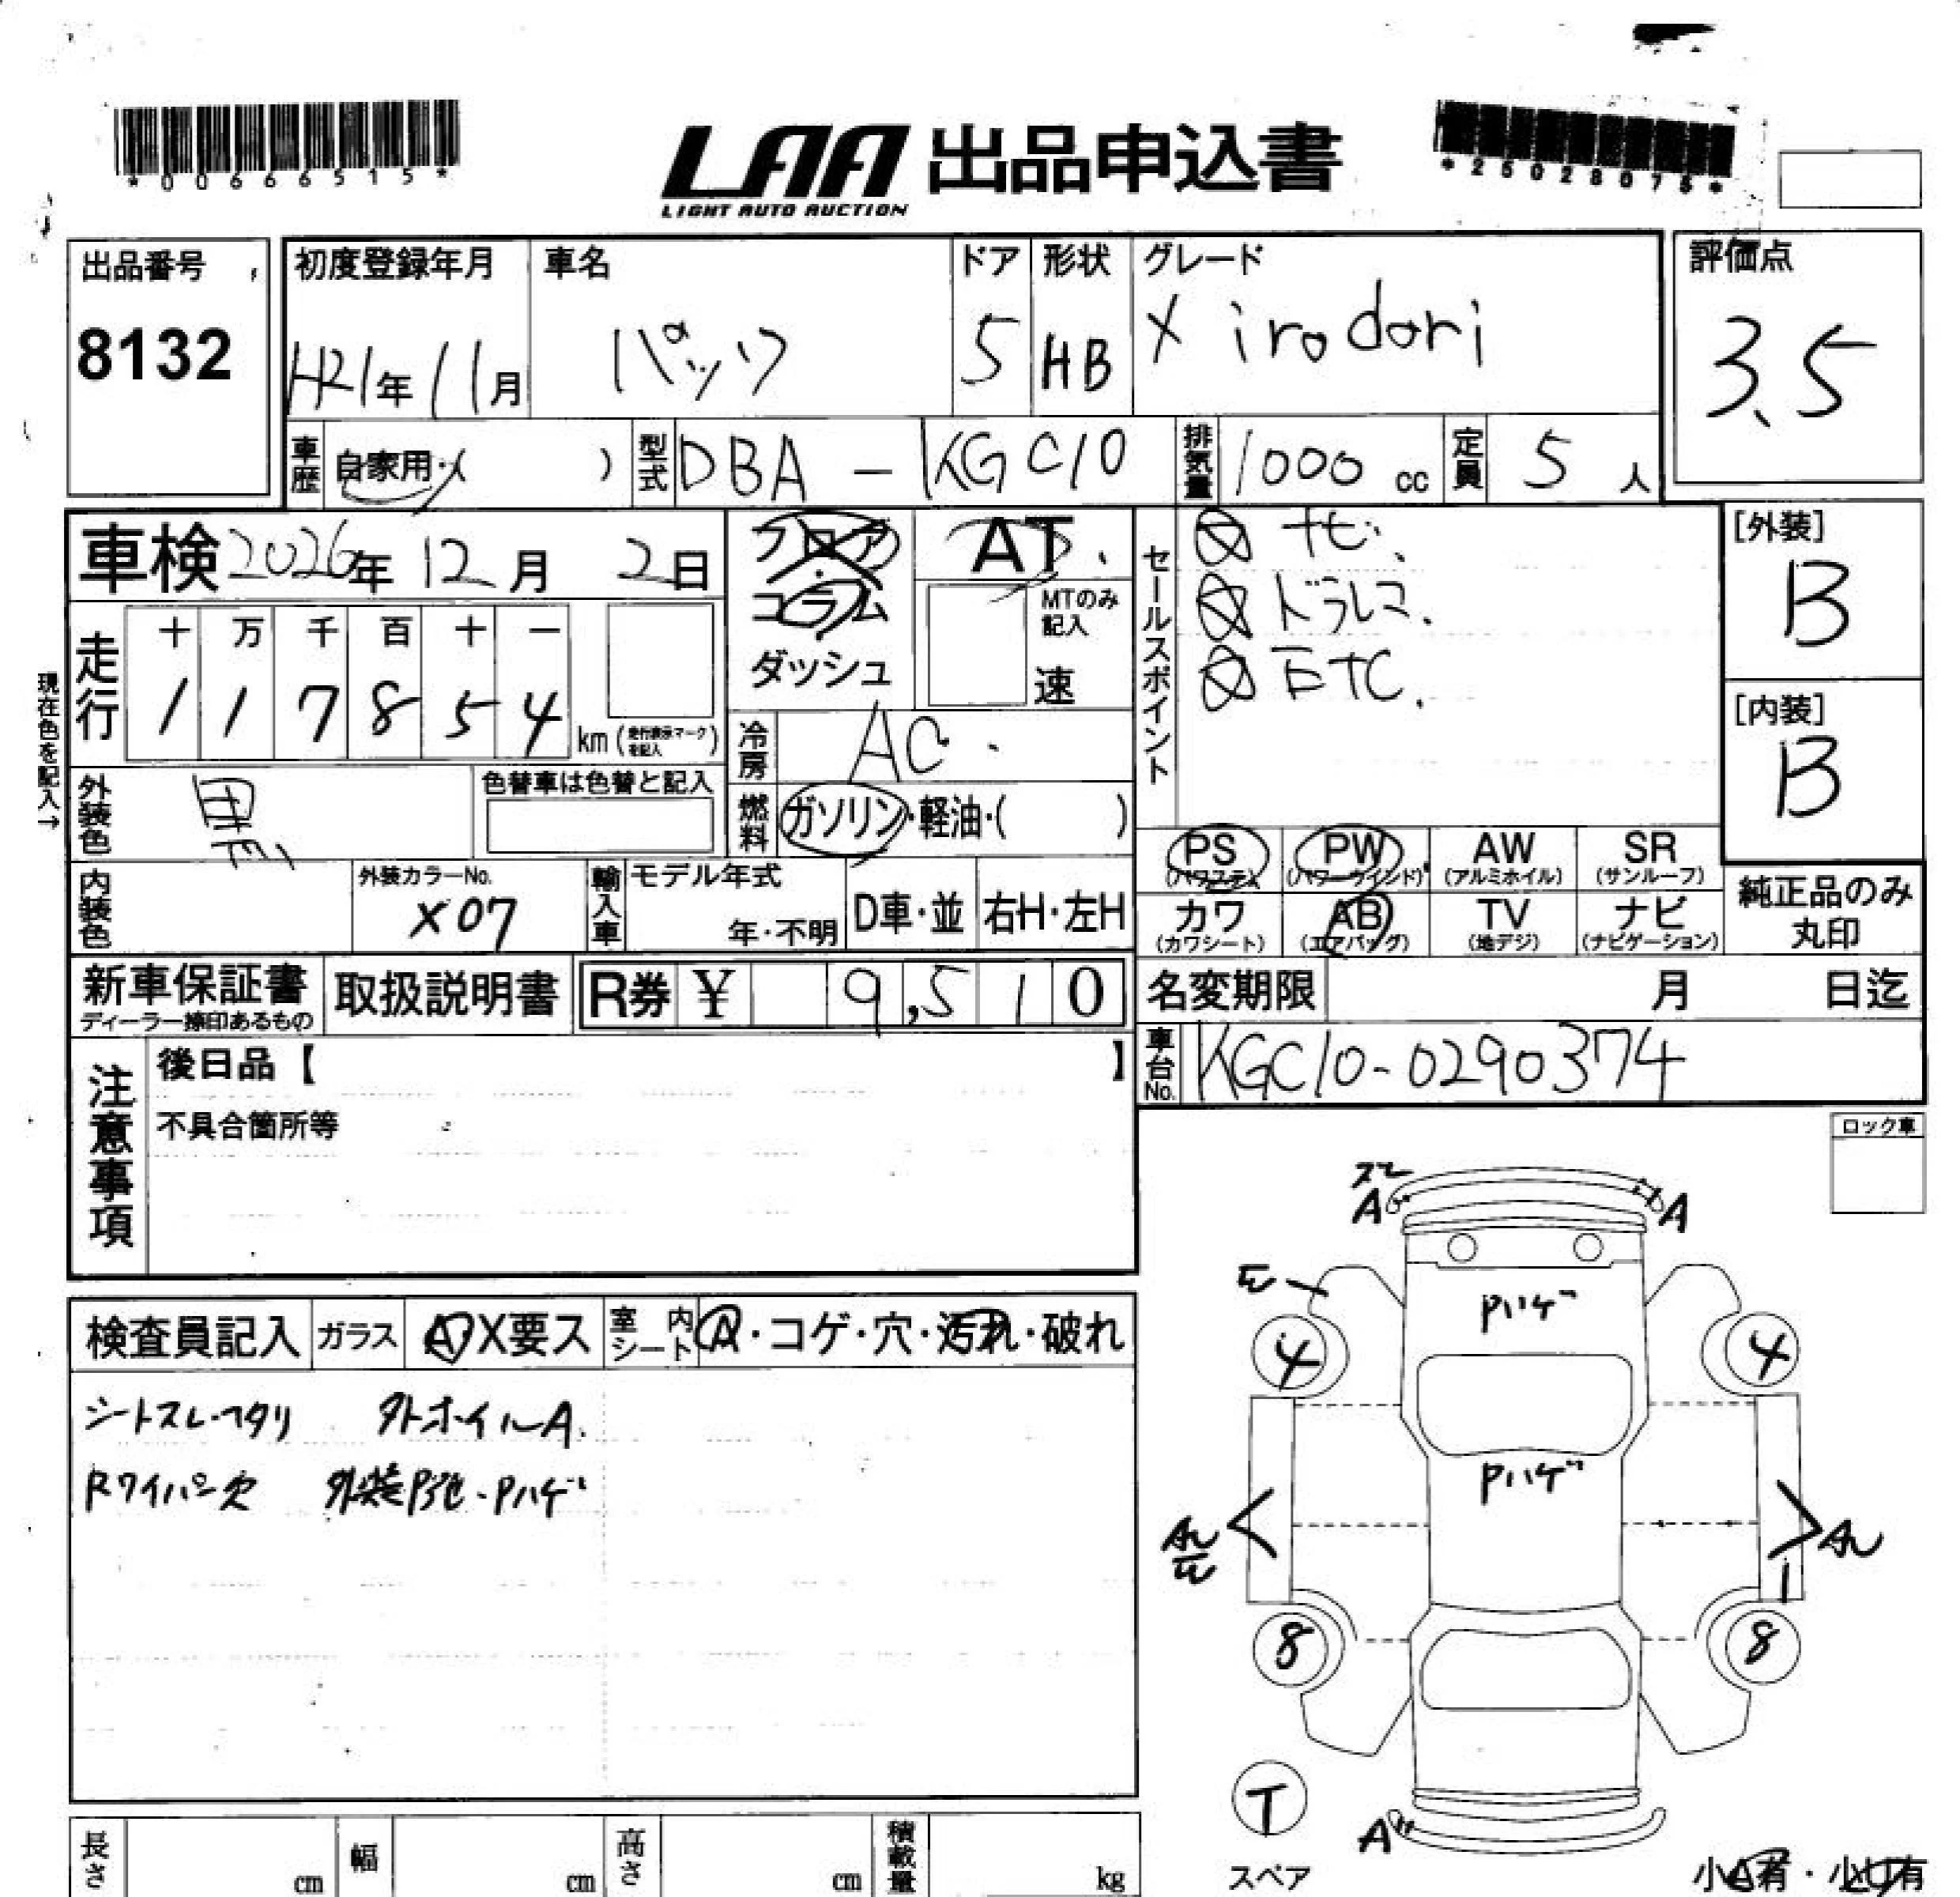 *00666515*
LAA 出品申込書
LIGHT AUTO AUCTION
*25028075*
出品番号
8132
初度登録年月
H21年 11月
車名
パッソ
ドア
5
形状
HB
グレード
X irodori
評価点
3.5
車歴 自家用・( )
型式 DBA - KGC10
排気量 1000 cc
定員 5 人
車検 2026年 12月 2日
フロア
コラム
ダッシュ
AT
MTのみ記入
速
セールスポイント
ナビ.
ドラレコ.
ETC.
[外装]
B
[内装]
B
現在色を記入→
走行
十 万 千 百 十 一
1 1 7 8 5 4
km (走行表示マークを記入)
冷房 AC
燃料 ガソリン・軽油・( )
外装色 黒
色替車は色替と記入
内装色
外装カラーNo.
X07
輸入車
モデル年式
年・不明
D車・並
右H・左H
PS (パワステ)
PW (パワーウインド)
AW (アルミホイル)
SR (サンルーフ)
カワ (カワシート)
AB (エアバッグ)
TV (地デジ)
ナビ (ナビゲーション)
純正品のみ丸印
新車保証書
ディーラー捺印あるもの
取扱説明書
R券 ¥ 9,510
名変期限 月 日迄
車台No. KGC10-0290374
注意事項
後日品【 】
不具合箇所等
ロック車
検査員記入
ガラス A・X要ス
室内シート A・コゲ・穴・汚れ・破れ
シートスレ・ヘタリ 外ホイルA.
Rワイパー欠 外装P色・Pハゲ
スレ
A
A
E
Pハゲ
4
4
Pハゲ
AU
E
AU
8
8
T
スペア
A
小A有・小U有
長さ cm
幅 cm
高さ cm
積載量 kg